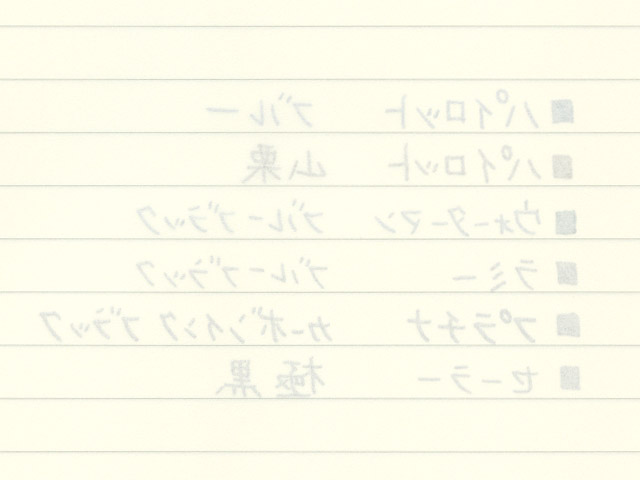 ■ パイロット ブルー
■ パイロット 山栗
■ ウォーターマン ブルーブラック
■ ラミー ブルーブラック
■ プラチナ カーボンインク ブラック
■ セーラー 極黒